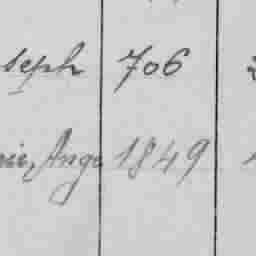 seph 706
nie, Ange 1849